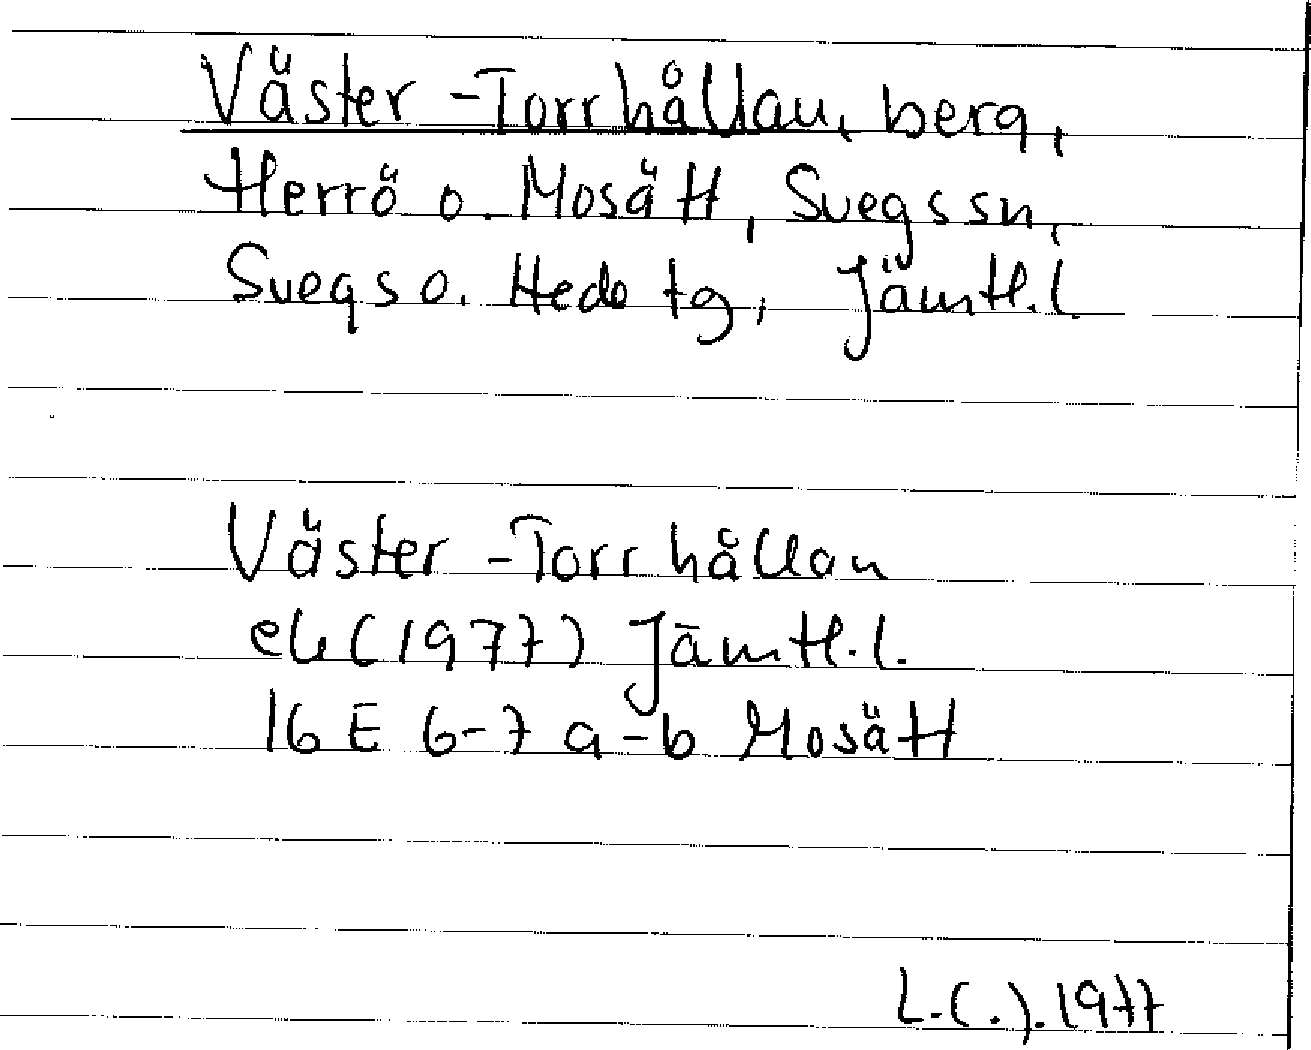 Väster-Torrhållan, berg,
Herrö o. Mosätt, Svegs sn,
Svegs o. Hede tg, Jämtl.l.
Väster-Torrhållan
ek (1977) Jämtl.l.
16 E 6-7 a-b Mosätt
L.(.).1977